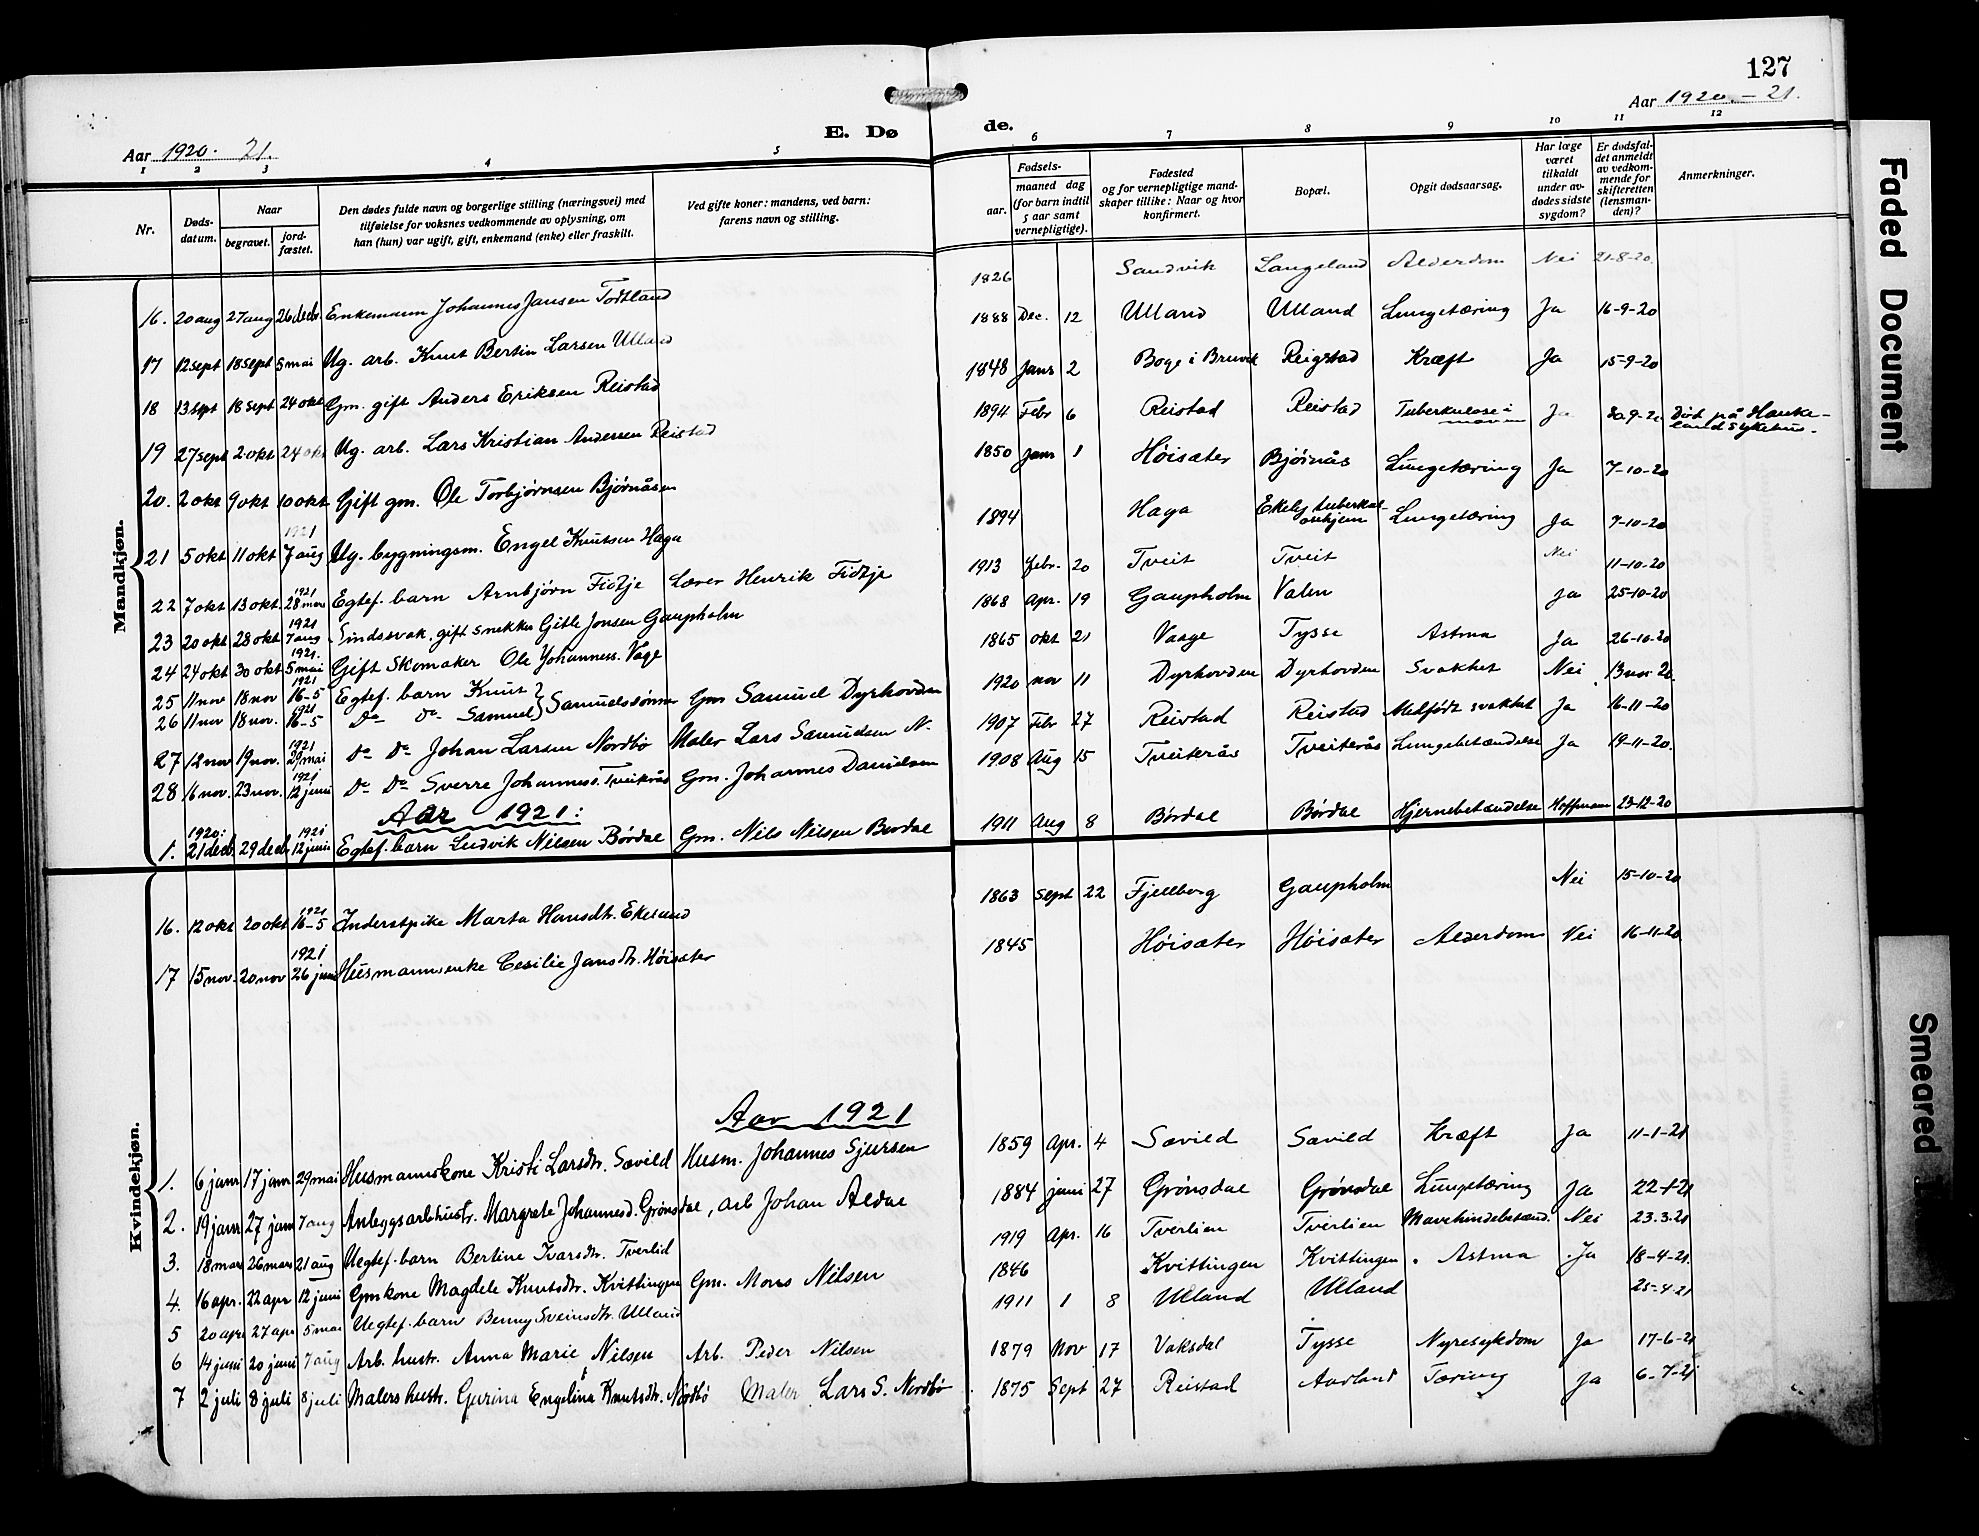 127
Aar 1920 - 21.
Aar 1920. 21.
E. Dø de.
1 2 3 4 5 6 7 8 9 10 11 12
Nr.
Døds-datum.
Naar
begravet.
jord-fæstet.
Den dødes fulde navn og borgerlige stilling (næringsvei) med
tilføielse for voksnes vedkommende av oplysning, om
han (hun) var ugift, gift, enkemand (enke) eller fraskilt.
Ved gifte koner: mandens, ved barn:
farens navn og stilling.
Fødsels-
aar.
maaned dag
(for barn indtil
5 aar samt
vernepligtige).
Fødested
og for vernepligtige mand-
skaper tillike: Naar og hvor
konfirmert.
Bopæl.
Opgit dødsaarsag.
Har læge
været
tilkaldt
under av-
dødes sidste
sygdom?
Er dødsfal-
det anmeldt
av vedkom-
mende for
skifteretten
(lensman-
den)?
Anmerkninger.
Mandkjøn.
16. 20 aug 27 aug 26 decb Enkemann Johannes Jansen Todtland 1826 Sandvik Langeland Alderdom Nei 21-8-20.
17 12 sept 18 sept 5 mai Ug. arb. Knut Bertin Larsen Ulland 1888 Dec. 12 Ulland Ulland Lungetæring Ja 16-9-20
18 13 sept 18 sept 24 okt Gm. gift Anders Eriksen Reistad 1848 Janr 2 Boge i Bruvik Reigstad Kræft Ja 15-9-20
19 27 sept 2 okt 24 okt Ug. arb. Lars Kristian Andersen Reistad 1894 Febr 6 Reistad Reistad Tuberkulose i maven Ja 30-9-20 Død på Hauke-
landsykehus.
20. 2 okt 9 okt 10 okt Gift gm. Ole Torbjørnsen Bjørnåsen 1850 Janr 1 Høisæter Bjørnås Lungetæring Ja 7-10-20
21 5 okt 11 okt 1921 7 aug Ug. bygningsm. Engel Knutsen Haga 1894 Haga Ekeley tuberkul-
oshjem Lungetæring Ja 7-10-20
22 7 okt 13 okt. 1921 28 mars Egtef. barn Arnbjørn Fidtje Lærer Henrik Fidtje 1913 febr. 20 Tveit Tveit Nei 11-10-20
23 20 okt 28 okt 1921 7 aug Sindssvak. gift snekker Gitle Jonsen Gaupholm 1868 Apr. 19 Gaupholm Valen Ja 25-10-20
24 24 okt 30 okt 1921. 5 mai Gift Skomaker Ole Johanness. Vage 1865 okt 21 Vaage Tysse Astma Ja 26-10-20
25 11 nov 18 nov 1921 16-5 Egtef. barn Knut } Samuelssønner Gm Samuel Dyrhovden 1920 nov 11 Dyrhovden Dyrhovden Svakhet Nei 13 nov. 20
26 11 nov 18 nov. 1921 16-5 Do Do Samuel
27 12 nov 19 nov. 1921 29 mai Do Do Johan Larsen Nordbø Maler Lars Samuelsen N. 1907 Febr 27 Reistad Reistad Medfødt svakhet Ja 16-11-20
28 16 nov. 23 nov. 1921 12 juni Do Do Sverre Johanness. Tveiterås Gm. Johannes Danielsen 1908 Aug 15 Tveiterås Tveiterås Lungebetændelse Ja 19-11-20.
Aar 1921:
1. 1920: 21 decb. 29 decb 1921 12 juni Egtef. barn Ludvik Nilsen Børdal Gm. Nils Nilsen Børdal 1911 Aug 8 Børdal Børdal Hjernebetændelse Hoffmann 23-12-20
Kvindekjøn.
16. 12 okt 20 okt 1921 16-5 Inderstpike Marta Hansdtr. Ekesund 1863 Sept 22 Fjellberg Gaupholm Nei 15-10-20
17 15 nov. 20 nov 1921 26 juni Husmannsenke Cesilie Jansdtr. Høisæter 1845 Høisæter Høisæter Alderdom Nei 16-11-20
Aar 1921
1. 6 janr 17 janr 29 mai Husmannskone Kristi Larsdtr. Sævild Husm. Johannes Sjursen 1859 Apr. 4 Sævild Sævild Kræft Ja 11-1-21
2. 19 janr 27 janr 7 aug Anleggsarbhustr. Margrete Johannesd. Grønsdal, arb Johan Aldal 1884 juni 27 Grønsdal Grønsdal Lungetæring Ja 22-1-21
3. 18 mars 26 mars 21 aug Uegtef. barn Bertine Ivarsdtr. Tverlid 1919 Apr. 16 Tverlien Tverlien Mavehindebetænd. Nei 23.3.21
4. 16 apr. 22 apr 12 juni Gmkone Magdele Knutsdtr. Kvittingen Gm. Mons Nilsen 1846 Kvittingen Kvittingen Astma Ja 18-4-21
5 20 apr 27 apr 5 mai Uegtef. barn Benny Sveinsdtr. Ulland 1911 1 8 Ulland Ulland 25-4-21
6 14 juni 20 juni 7 aug Arb. hustr. Anna Marie Nilsen Arb. Peder Nilsen 1879 Nov 17 Vaksdal Tysse Nyresykdom Ja 17-6-21
7 2 juli 8 juli 8 juli Malers hustr. Gurina Engelina Knutsdtr. Nordbø Maler Lars S. Nordbø 1875 Sept 27 Reistad Aarland Tæring Ja 6-7-21
Faded Document
Smeared